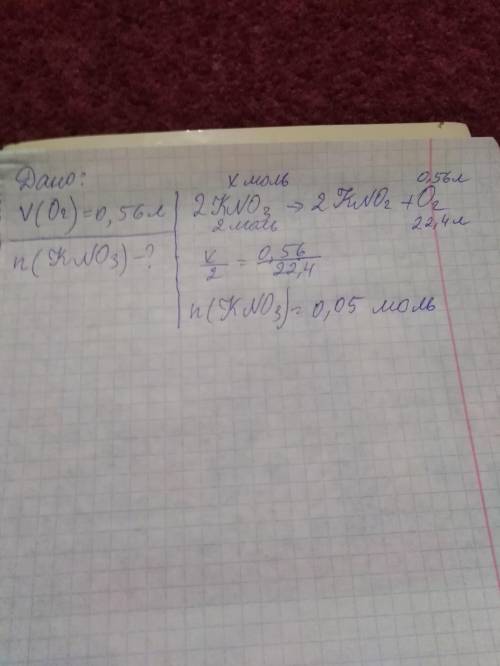 Дано:
V(O₂)=0,56л
n(KNO₃)-?
x моль 0,56л
2KNO₃ → 2KNO₂ + O₂
2моль 22,4л
x/2 = 0,56/22,4
n(KNO₃)= 0,05 моль